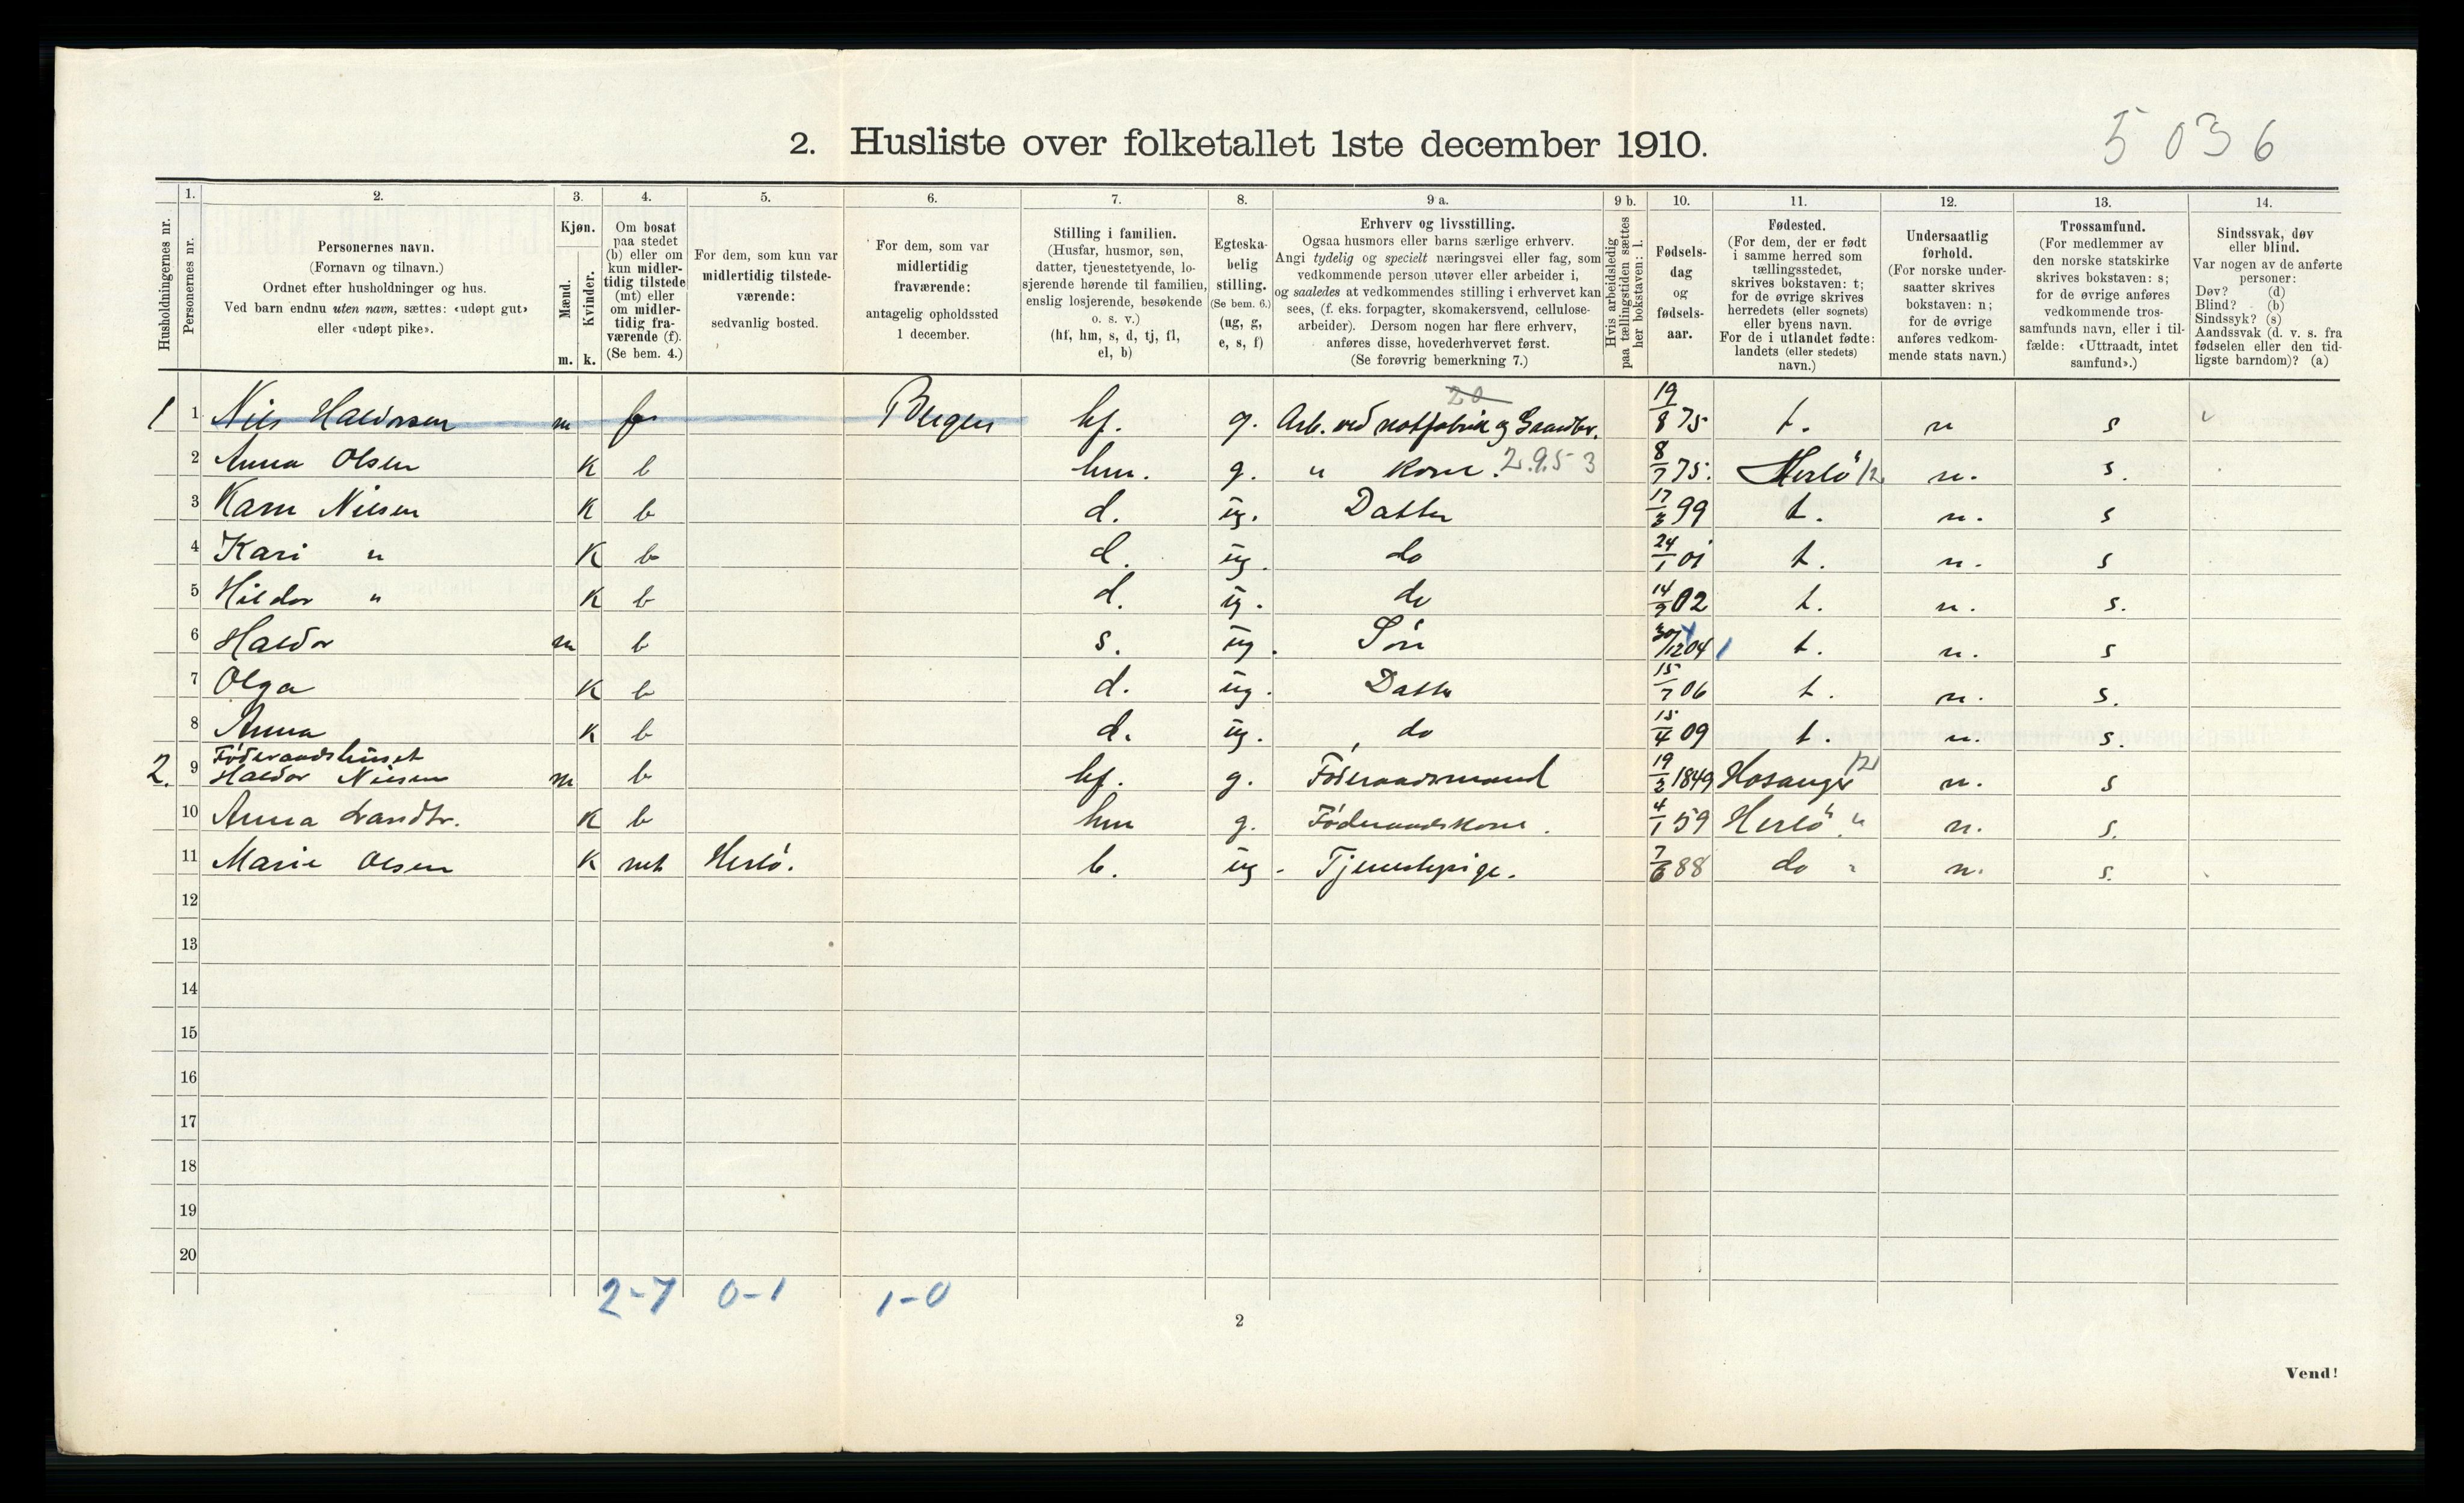 5036
2. Husliste over folketallet 1ste december 1910.
Husholdningernes nr.
1. Personernes nr.
2. Personernes navn.
(Fornavn og tilnavn.)
Ordnet efter husholdninger og hus.
Ved barn endnu uten navn, sættes: «udøpt gut»
eller «udøpt pike».
3. Kjøn.
Mænd. m.
Kvinder. k.
4. Om bosat
paa stedet
(b) eller om
kun midler-
tidig tilstede
(mt) eller
om midler-
tidig fra-
værende (f).
(Se bem. 4.)
5. For dem, som kun var
midlertidig tilstede-
værende:
sedvanlig bosted.
6. For dem, som var
midlertidig
fraværende:
antagelig opholdssted
1 december.
7. Stilling i familien.
(Husfar, husmor, søn,
datter, tjenestetyende, lo-
sjerende hørende til familien,
enslig losjerende, besøkende
o. s. v.)
(hf, hm, s, d, tj, fl,
el, b)
8. Egteska-
belig
stilling.
(Se bem. 6.)
(ug, g,
e, s, f)
9 a. Erhverv og livsstilling.
Ogsaa husmors eller barns særlige erhverv.
Angi tydelig og specielt næringsvei eller fag, som
vedkommende person utøver eller arbeider i,
og saaledes at vedkommendes stilling i erhvervet kan
sees, (f. eks. forpagter, skomakersvend, cellulose-
arbeider). Dersom nogen har flere erhverv,
anføres disse, hovederhvervet først.
(Se forøvrig bemerkning 7.)
9 b. Hvis arbeidsledig
paa tællingstiden sættes
her bokstaven: l.
10. Fødsels-
dag
og
fødsels-
aar.
11. Fødested.
(For dem, der er født
i samme herred som
tællingsstedet,
skrives bokstaven: t;
for de øvrige skrives
herredets (eller sognets)
eller byens navn.
For de i utlandet fødte:
landets (eller stedets)
navn.)
12. Undersaatlig
forhold.
(For norske under-
saatter skrives
bokstaven: n;
for de øvrige
anføres vedkom-
mende stats navn.)
13. Trossamfund.
(For medlemmer av
den norske statskirke
skrives bokstaven: s;
for de øvrige anføres
vedkommende tros-
samfunds navn, eller i til-
fælde: «Uttraadt, intet
samfund».)
14. Sindssvak, døv
eller blind.
Var nogen av de anførte
personer:
Døv? (d)
Blind? (b)
Sindssyk? (s)
Aandssvak (d. v. s. fra
fødselen eller den tid-
ligste barndom)? (a)
20
1 1 Nils Haldorsen m f Bergen hf. g. Arb. ved notfabrik og Gaardbr. 19/8 75 t. n s
2 Anna Olsen K b hm. g. " Kone. 2.9.53 8/7 75. Herlö 12 n. s.
3 Karn Nilsen K b d. ug. Datter 17/3 99 t. n. s
4 Kari " K b d. ug. do 24/1 01 t. n. s
5 Hildor " K b d. ug. do 14/9 02 t. n. s.
6 Haldor m b s. ug. Sön 30/12 04 1 t. n. s
7 Olga K b d. ug. Datter 15/7 06 t. n. s.
8 Anna K b d. ug. do 15/4 09 t. n. s.
Föderaadshuset
2. 9 Haldor Nilsen m b hf. g. Föderaadsmand 19/2 1849 Hosanger 12 n. s
10 Anna Landbr. K b hm g. Föderaadskone. 4/1 59 Herlö " n. s.
11 Marie Olsen K mt Herlö. b. ug. Tjenestepige. 7/6 88 do " n. s.
12
13
14
15
16
17
18
19
20
2-7 0-1 1-0
2
Vend!